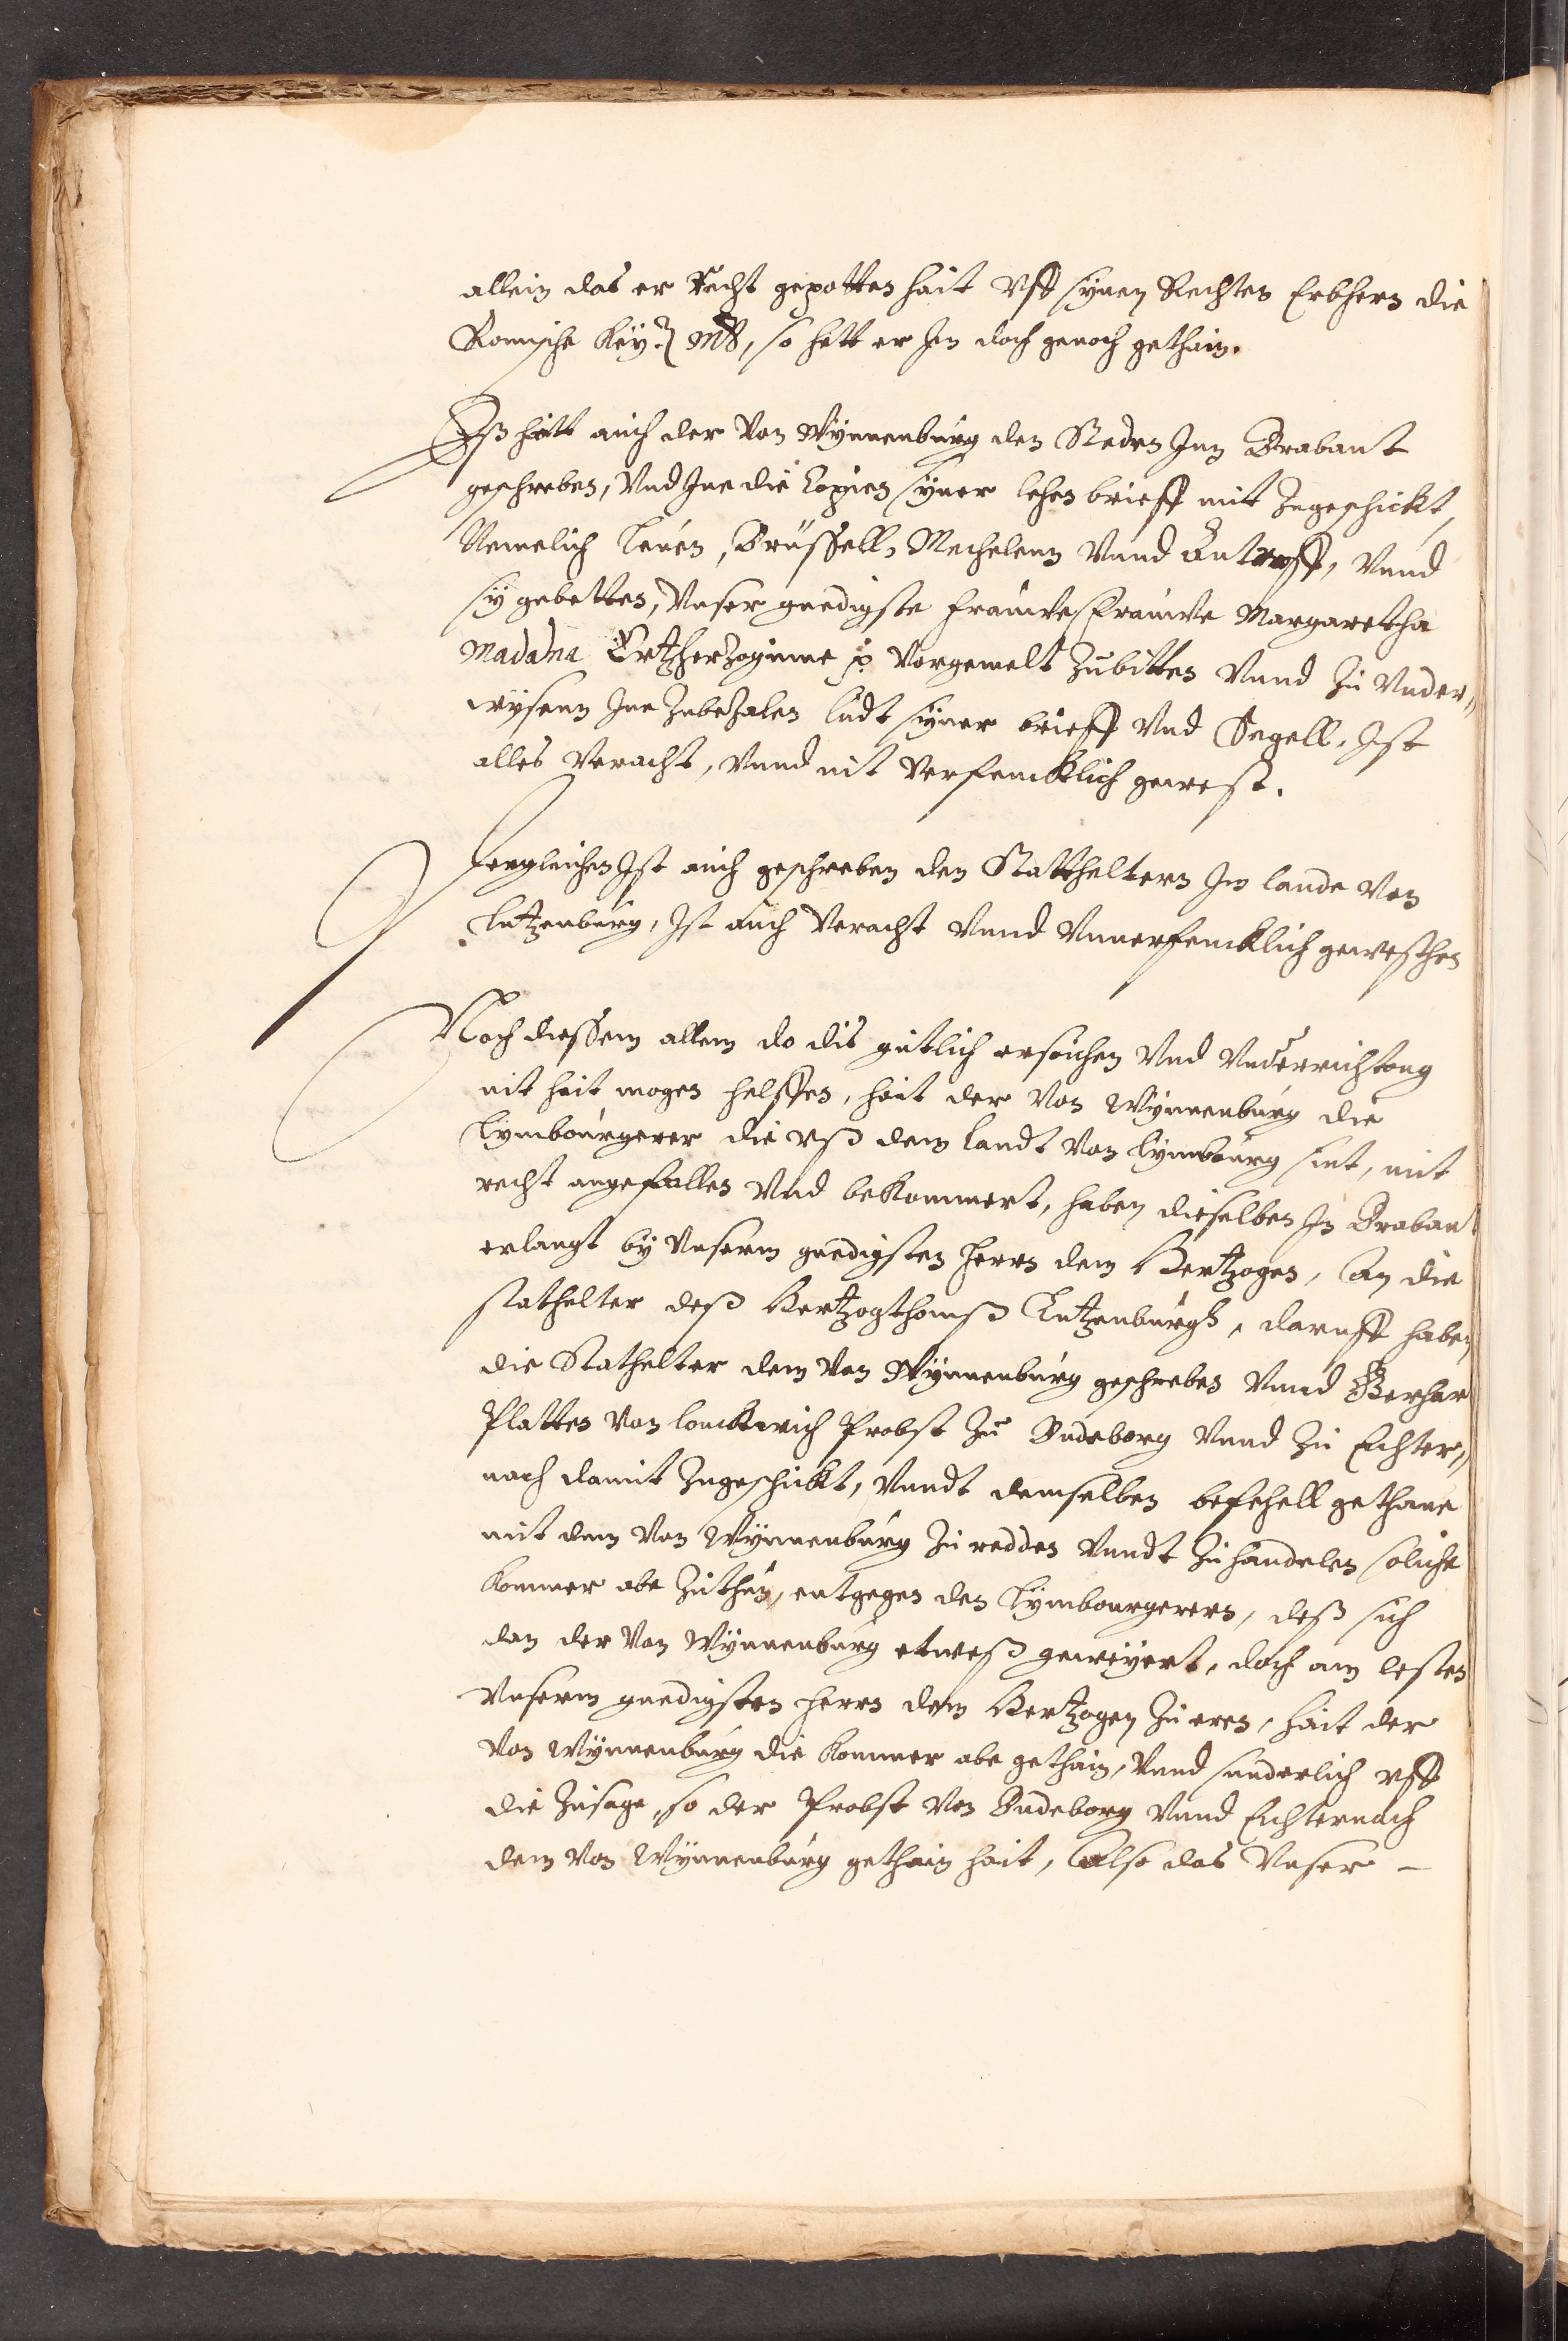 allein das er Recht gepotten hait vff synen Rechten Erbhern die
Romische Key: Mt, so hett er Im doch genoch gethain.
Eß hatt auch der von Wynnenburg den Steden Inn Brabant
geschreben, vnd Inne die Copien syner lehen brieff mit zugeschickt,
Nemelich Leuen, Brüssell, Mechelenn vnnd Antorff, vnnd
sy gebetten, vnser gnedigste Frauwe Frauwe Margaretha
Madama Ertzherzoginne p. vorgemelt zubitten vnnd zu vnder„
wysenn Inne zubezalen ludt syner brieff vnd Segell, Ist
alles veracht, vnnd nit verfencklich gewest.
Dergleichen Ist auch geschreben den Stattheltern Im lande von
Lutzenburg, Ist auch veracht vnnd vnuerfencklich gewesthen
Noch diessem allem do dis gutlich ersuchen vnd vnderrichtong
nit hait mogen helffen, hait der von Wynnenburg die
Lymbourgerer die vß dem landt von Lymbourg sint, mit
recht angefallen vnd bekommert, haben dieselben In Brabant
erlangt by vnserm gnedigsten herrn dem Hertzogen, An die
stathelter deß Hertzogthomß Lutzenburgh, daruff haben
die Stathelter dem von Wynnenburg geschreben vnnd Gerhar
Platten von Lonckwich Probst zu Budeborg vnnd zu Echter„
nach damit zugeschickt, vnndt demselben befehell gethane
mit dem von Wynnenburg zu redden vnndt zu handelen soliche
kommer abe zuthun, entgegen den Lymbourgerern, deß sich
dan der von Wynnenburg etweß geweyert, doch am lesten
vnserm gnedigsten herrn dem Hertzogen zu eren, hait der
von Wynnenburg die kommer abe gethain, vnnd sunderlich vff
die zusage, so der Probst von Budeborg vnnd Echternach
dem von Wynnenburg gethain hait, Also das vnser –